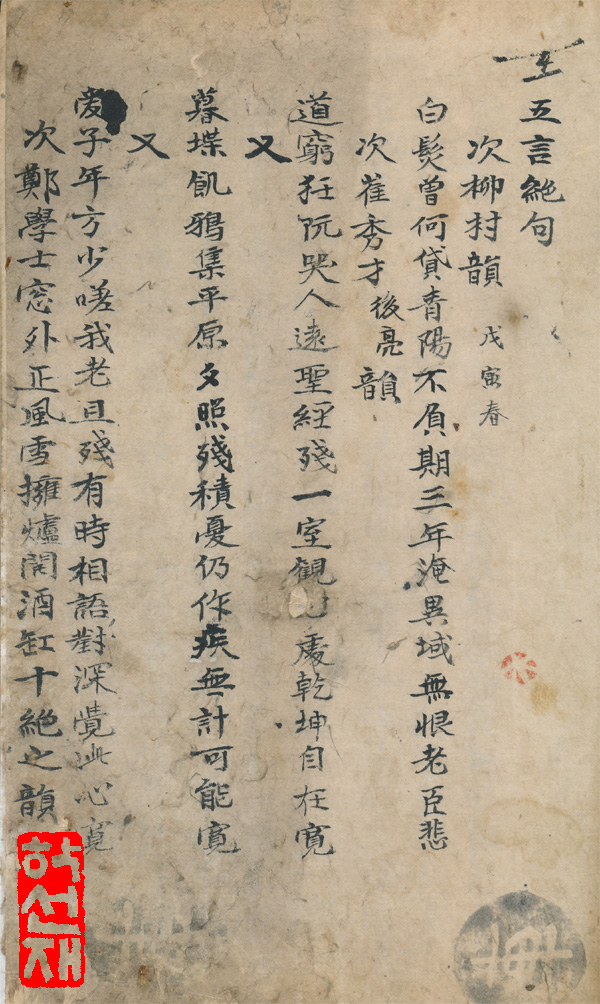 五言絶句
次柳村韻 戊寅春
白髮曾何貸青陽不負期三年淹異域無恨老臣悲
次崔秀才後亮韻
道窮狂阮哭人遠聖經殘一室觀處乾坤自在寬
又
暮堞飢鴉集平原夕照殘積憂仍作疾無計可能寬
又
愛子年方少嗟我老且殘有時相語對深覺此心寬
次鄭學士窓外正風雪擁爐開酒缸十絶之韻
학선재